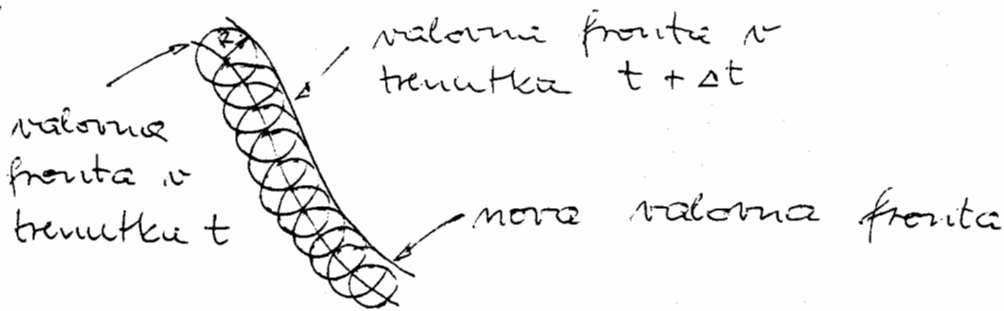 valovna fronta v
trenutku t + Δt
valovna
fronta v
trenutku t
r
nova valovna fronta